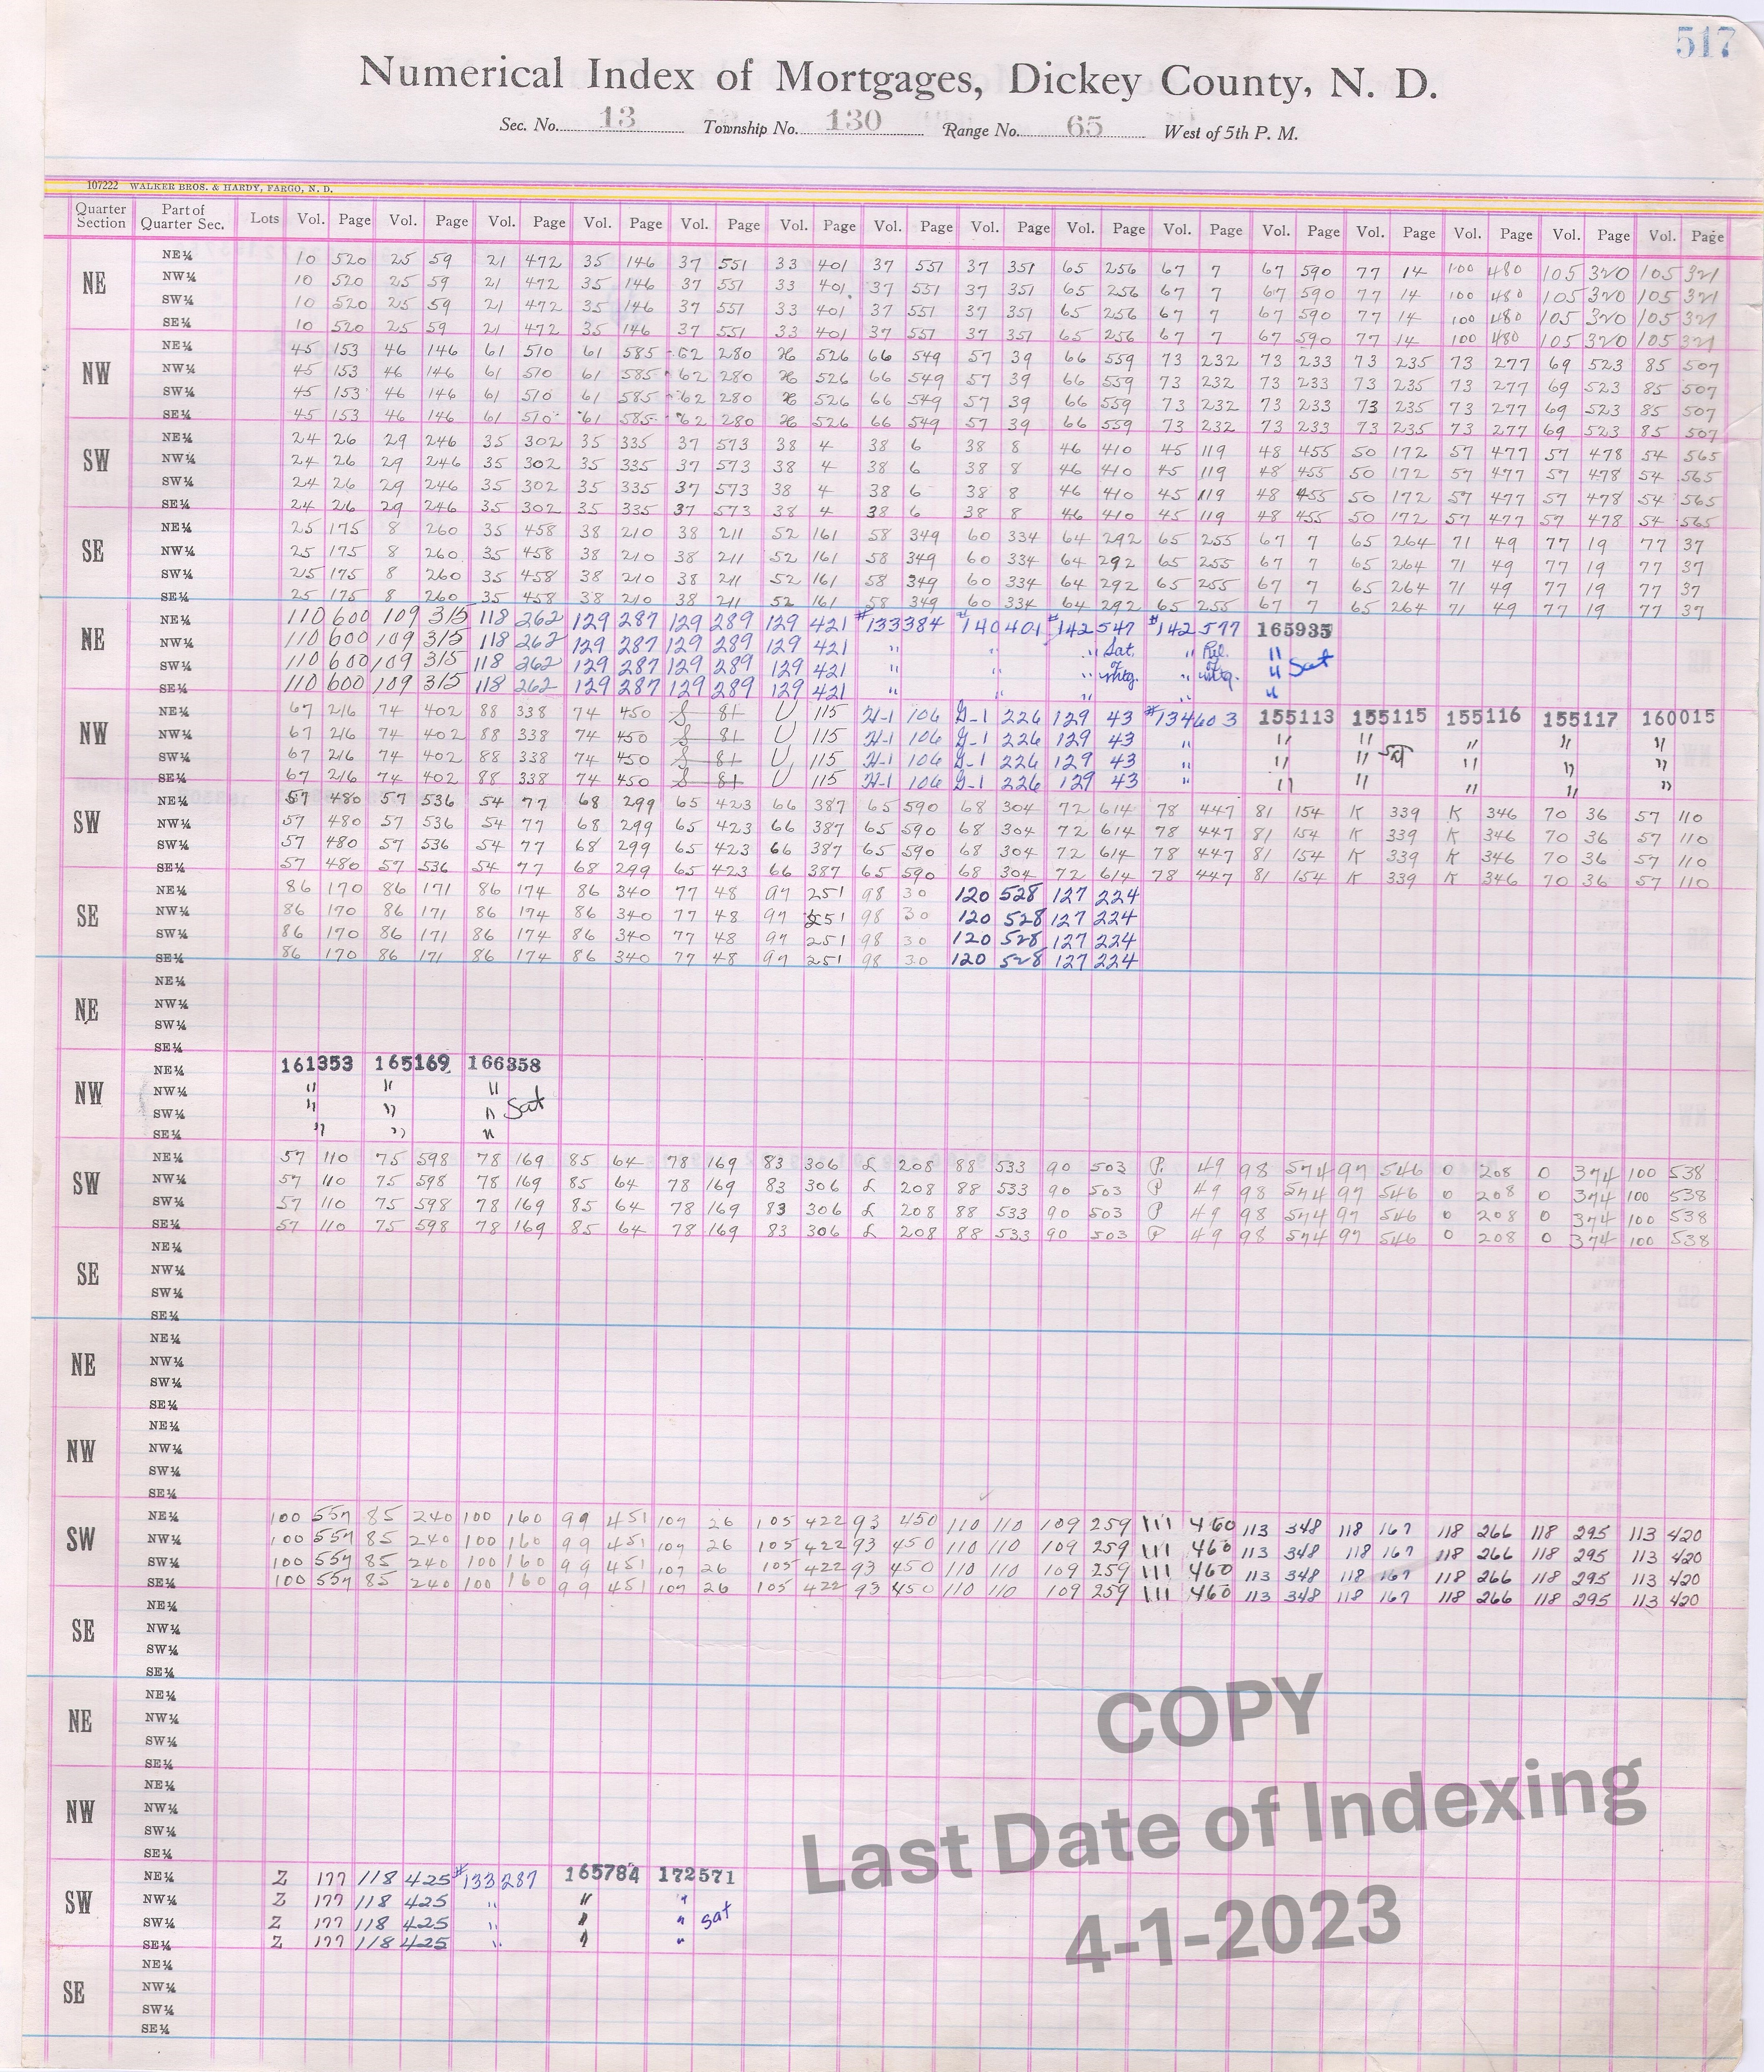 517
Numerical Index of Mortgages, Dickey County, N. D.
Sec. No. 13 Township No. 130 Range No. 65 West of 5th P. M.
107222 WALKER BROS. & HARDY, FARGO, N. D.
Quarter Section Part of Quarter Sec. Lots Vol. Page Vol. Page Vol. Page Vol. Page Vol. Page Vol. Page Vol. Page Vol. Page Vol. Page Vol. Page Vol. Page Vol. Page Vol. Page Vol. Page Vol. Page
NE NE¼ 10 520 25 59 21 472 35 146 37 551 33 401 37 551 37 351 65 256 67 7 67 590 77 14 100 480 105 320 105 321
NW¼ 10 520 25 59 21 472 35 146 37 551 33 401 37 551 37 351 65 256 67 7 67 590 77 14 100 480 105 320 105 321
SW¼ 10 520 25 59 21 472 35 146 37 551 33 401 37 551 37 351 65 256 67 7 67 590 77 14 100 480 105 320 105 321
SE¼ 10 520 25 59 21 472 35 146 37 551 33 401 37 551 37 351 65 256 67 7 67 590 77 14 100 480 105 320 105 321
NW NE¼ 45 153 46 146 61 510 61 585 62 280 526 66 549 57 39 66 559 73 232 73 233 73 235 73 277 69 523 85 507
NW¼ 45 153 46 146 61 510 61 585 62 280 526 66 549 57 39 66 559 73 232 73 233 73 235 73 277 69 523 85 507
SW¼ 45 153 46 146 61 510 61 585 62 280 526 66 549 57 39 66 559 73 232 73 233 73 235 73 277 69 523 85 507
SE¼ 45 153 46 146 61 510 61 585 62 280 526 66 549 57 39 66 559 73 232 73 233 73 235 73 277 69 523 85 507
SW NE¼ 24 26 29 246 35 302 35 335 37 573 38 4 38 6 38 8 46 410 45 119 48 455 50 172 57 477 57 478 54 565
NW¼ 24 26 29 246 35 302 35 335 37 573 38 4 38 6 38 8 46 410 45 119 48 455 50 172 57 477 57 478 54 565
SW¼ 24 26 29 246 35 302 35 335 37 573 38 4 38 6 38 8 46 410 45 119 48 455 50 172 57 477 57 478 54 565
SE¼ 24 26 29 246 35 302 35 335 37 573 38 4 38 6 38 8 46 410 45 119 48 455 50 172 57 477 57 478 54 565
SE NE¼ 25 175 8 260 35 458 38 210 38 211 52 161 58 349 60 334 64 292 65 255 67 7 65 264 71 49 77 19 77 37
NW¼ 25 175 8 260 35 458 38 210 38 211 52 161 58 349 60 334 64 292 65 255 67 7 65 264 71 49 77 19 77 37
SW¼ 25 175 8 260 35 458 38 210 38 211 52 161 58 349 60 334 64 292 65 255 67 7 65 264 71 49 77 19 77 37
SE¼ 25 175 8 260 35 458 38 210 38 211 52 161 58 349 60 334 64 292 65 255 67 7 65 264 71 49 77 19 77 37
NE NE¼ 110 600 109 315 118 262 129 287 129 289 129 421 #133384 #140401 #142547 #142577 165935
NW¼ 110 600 109 315 118 262 129 287 129 289 129 421 " " " Sat. " Rel. "
SW¼ 110 600 109 315 118 262 129 287 129 289 129 421 " " " of mtg. " of mtg. " Sat
SE¼ 110 600 109 315 118 262 129 287 129 289 129 421 " " " " "
NW NE¼ 67 216 74 402 88 338 74 450 S 81 U 115 H-1 106 G-1 226 129 43 #134603 155113 155115 155116 155117 160015
NW¼ 67 216 74 402 88 338 74 450 S 81 U 115 H-1 106 G-1 226 129 43 " " " " " "
SW¼ 67 216 74 402 88 338 74 450 S 81 U 115 H-1 106 G-1 226 129 43 " " " " " "
SE¼ 67 216 74 402 88 338 74 450 S 81 U 115 H-1 106 G-1 226 129 43 " " " " " "
SW NE¼ 57 480 57 536 54 77 68 299 65 423 66 387 65 590 68 304 72 614 78 447 81 154 K 339 K 346 70 36 57 110
NW¼ 57 480 57 536 54 77 68 299 65 423 66 387 65 590 68 304 72 614 78 447 81 154 K 339 K 346 70 36 57 110
SW¼ 57 480 57 536 54 77 68 299 65 423 66 387 65 590 68 304 72 614 78 447 81 154 K 339 K 346 70 36 57 110
SE¼ 57 480 57 536 54 77 68 299 65 423 66 387 65 590 68 304 72 614 78 447 81 154 K 339 K 346 70 36 57 110
SE NE¼ 86 170 86 171 86 174 86 340 77 48 97 251 98 30 120 528 127 224
NW¼ 86 170 86 171 86 174 86 340 77 48 97 251 98 30 120 528 127 224
SW¼ 86 170 86 171 86 174 86 340 77 48 97 251 98 30 120 528 127 224
SE¼ 86 170 86 171 86 174 86 340 77 48 97 251 98 30 120 528 127 224
NE NE¼
NW¼
SW¼
SE¼
NW NE¼ 161353 165169 166358
NW¼ " " "
SW¼ " " " Sat
SE¼ " " "
SW NE¼ 57 110 75 598 78 169 85 64 78 169 83 306 L 208 88 533 90 503 P 49 98 574 97 546 O 208 O 374 100 538
NW¼ 57 110 75 598 78 169 85 64 78 169 83 306 L 208 88 533 90 503 P 49 98 574 97 546 O 208 O 374 100 538
SW¼ 57 110 75 598 78 169 85 64 78 169 83 306 L 208 88 533 90 503 P 49 98 574 97 546 O 208 O 374 100 538
SE¼ 57 110 75 598 78 169 85 64 78 169 83 306 L 208 88 533 90 503 P 49 98 574 97 546 O 208 O 374 100 538
SE NE¼
NW¼
SW¼
SE¼
NE NE¼
NW¼
SW¼
SE¼
NW NE¼
NW¼
SW¼
SE¼
SW NE¼ 100 557 85 240 100 160 99 451 107 26 105 422 93 450 110 110 109 259 111 460 113 348 118 167 118 266 118 295 113 420
NW¼ 100 557 85 240 100 160 99 451 107 26 105 422 93 450 110 110 109 259 111 460 113 348 118 167 118 266 118 295 113 420
SW¼ 100 557 85 240 100 160 99 451 107 26 105 422 93 450 110 110 109 259 111 460 113 348 118 167 118 266 118 295 113 420
SE¼ 100 557 85 240 100 160 99 451 107 26 105 422 93 450 110 110 109 259 111 460 113 348 118 167 118 266 118 295 113 420
SE NE¼
NW¼
SW¼
SE¼
NE NE¼
NW¼
SW¼
SE¼
NW NE¼
NW¼
SW¼
SE¼
SW NE¼ Z 177 118 425 #133287 165784 172571
NW¼ Z 177 118 425 " " "
SW¼ Z 177 118 425 " " " Sat
SE¼ Z 177 118 425 " " "
SE NE¼
NW¼
SW¼
SE¼
COPY
Last Date of Indexing
4-1-2023